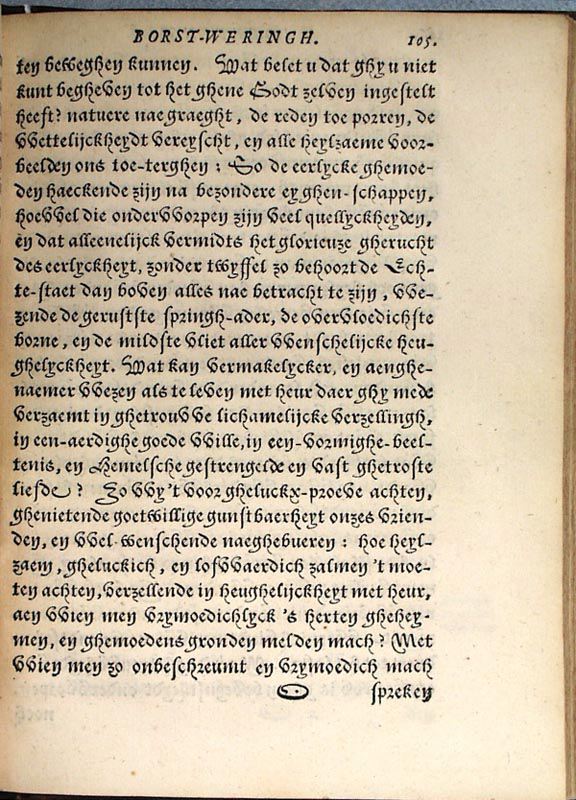 BORST-WERINGH. 105.
ten beweghen kunnen. Wat belet u dat ghy u niet
kunt begheven tot het ghene Godt zelven ingestelt
heeft? natuere naegraeght, de reden toe porren, de
vvettelijckheydt vereyscht, en alle heylzaeme voor-
beelden ons toe-terghen: So de eerlycke ghemoe-
den haeckende zijn na bezondere eyghen-schappen,
hoevvel die ondervvorpen zijn veel quellyckheyden,
en dat alleenelijck vermidts het glorieuze gherucht
des eerlyckheyt, zonder twyffel zo behoort de Ech-
te-staet dan boven alles nae betracht te zijn, vve-
zende de gerustste springh-ader, de overvloedichste
borne, en de mildste vliet aller vvenschelijcke heu-
ghelyckheyt. Wat kan vermakelycker, en aenghe-
naemer vvezen als te leven met heur daer ghy mede
verzaemt in ghetrouvve lichamelijcke verzellingh,
in een-aerdighe goede vville, in een-vormighe beel-
tenis, en Hemelsche gestrengelde en vast ghetroste
liefde? Zo vvy 't voor gheluckx-proeve achten,
ghenietende goetwillige gunstbaerheyt onzes vrien-
den, en vvel-wenschende naeghebueren: hoe heyl-
zaem, gheluckich, en lofvvaerdich zalmen 't moe-
ten achten, verzellende in heughelijckheyt met heur,
aen vvien men vrymoedichlyck 's herten ghehey-
men, en ghemoedens gronden melden mach? Met
vvien men zo onbeschreumt en vrymoedich mach
spreken